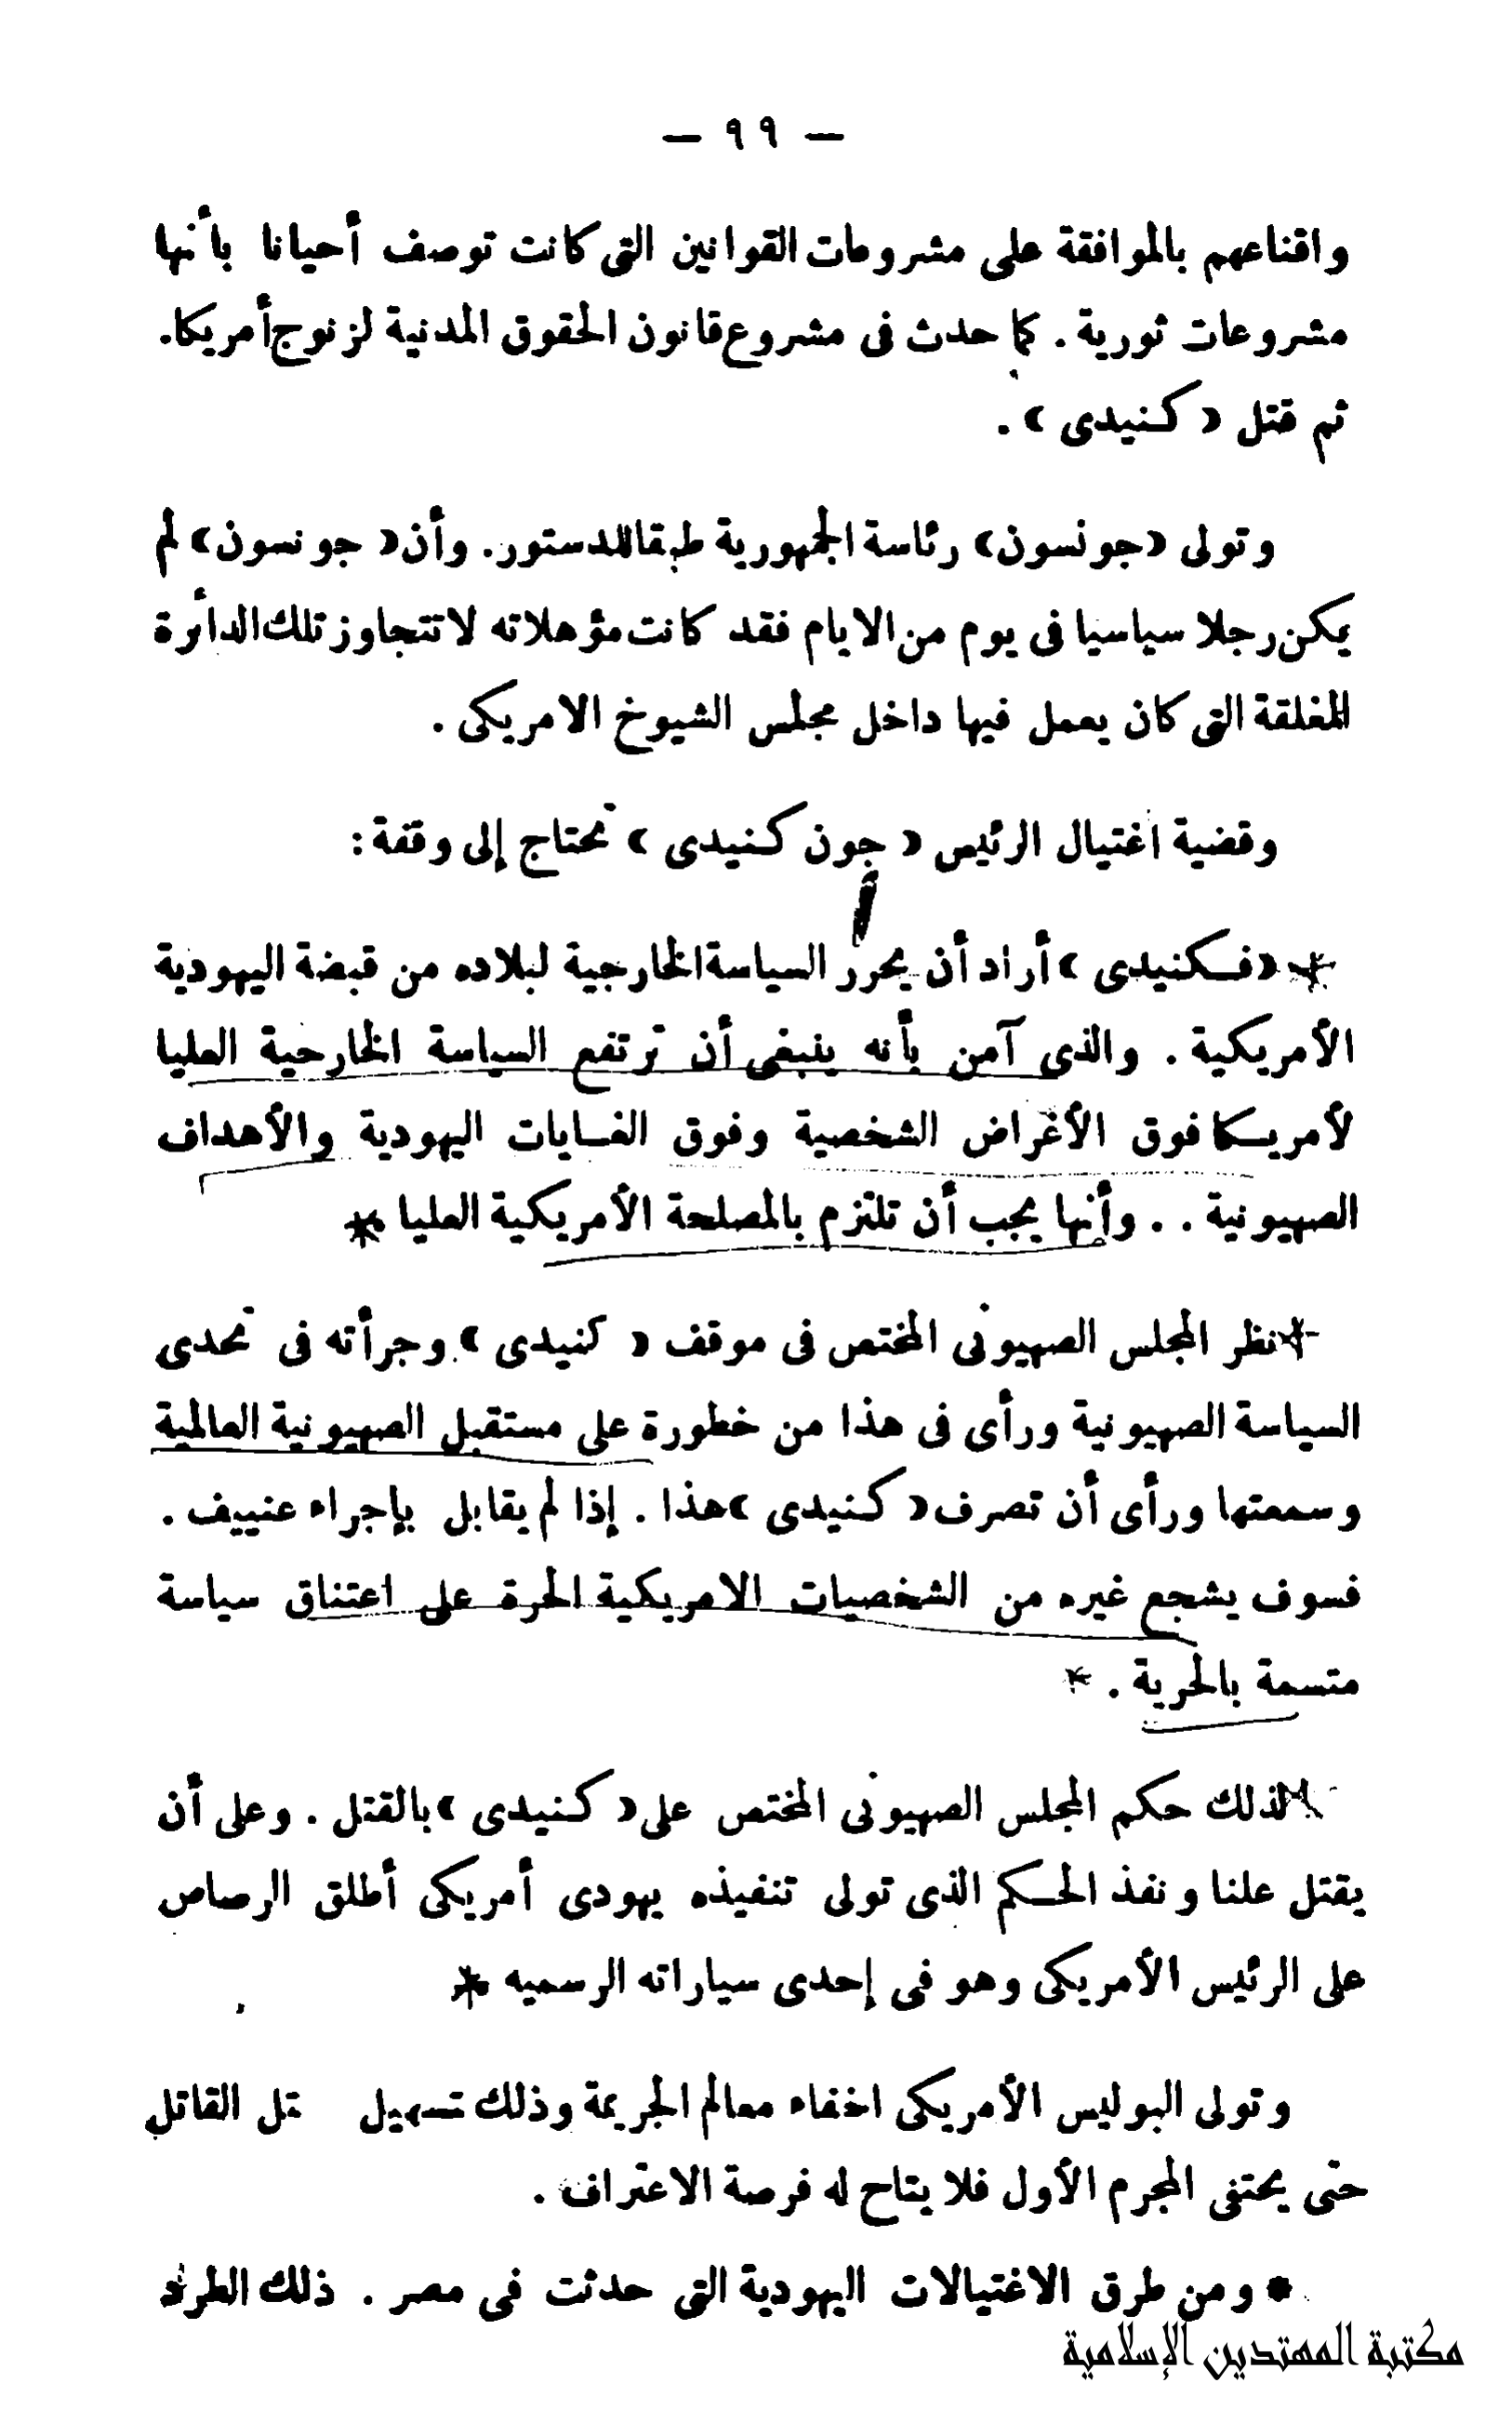 — ٩٩ —
واقناعهم بالموافقة على مشروعات القوانين التى كانت توصف أحيانا بأنها
مشروعات ثورية . كما حدث فى مشروع قانون الحقوق المدنية لزنوج أمريكا.
ثم قتل « كنيدى » .
وتولى «جونسون» رئاسة الجمهورية طبقا للدستور. وأن « جونسون» لم
يكن رجلا سياسيا فى يوم من الايام فقد كانت مؤهلاته لا تتجاوز تلك الدائرة
المغلقة التى كان يعمل فيها داخل مجلس الشيوخ الامريكى .
وقضية اغتيال الرئيس « جون كنيدى » تحتاج إلى وقفة :
* «فكنيدى » أراد أن يحرر السياسة الخارجية لبلاده من قبضة اليهودية
الأمريكية . والذى آمن بأنه ينبغى أن ترتفع السياسة الخارجية العليا
لأمريكا فوق الأغراض الشخصية وفوق الغايات اليهودية والأهداف
الصهيونية . . وأنها يجب أن تلتزم بالمصلحة الأمريكية العليا *
* نظر المجلس الصهيونى المختص فى موقف « كنيدى » وجرأته فى تحدى
السياسة الصهيونية ورأى فى هذا من خطورة على مستقبل الصهيونية العالمية
وسمعتها ورأى أن تصرف « كنيدى » هذا . إذا لم يقابل بإجراء عنييف .
فسوف يشجع غيره من الشخصيات الامريكية الحرة على اعتناق سياسة
متسمة بالحرية . *
* لذلك حكم المجلس الصهيونى المختص على « كنيدى » بالقتل . وعلى أن
يقتل علنا ونفذ الحكم الذى تولى تنفيذه يهودى أمريكى أطلق الرصاص
على الرئيس الأمريكى وهو فى إحدى سياراته الرسميه *
وتولى البوليس الأمريكى اخفاء معالم الجريمة وذلك تسهيل القاتل
حتى يختفى المجرم الأول فلا يتاح له فرصة الاعتراف .
* ومن طرق الاغتيالات اليهودية التى حدثت فى مصر . ذلك الطرد
مكتبة المهتدين الإسلامية